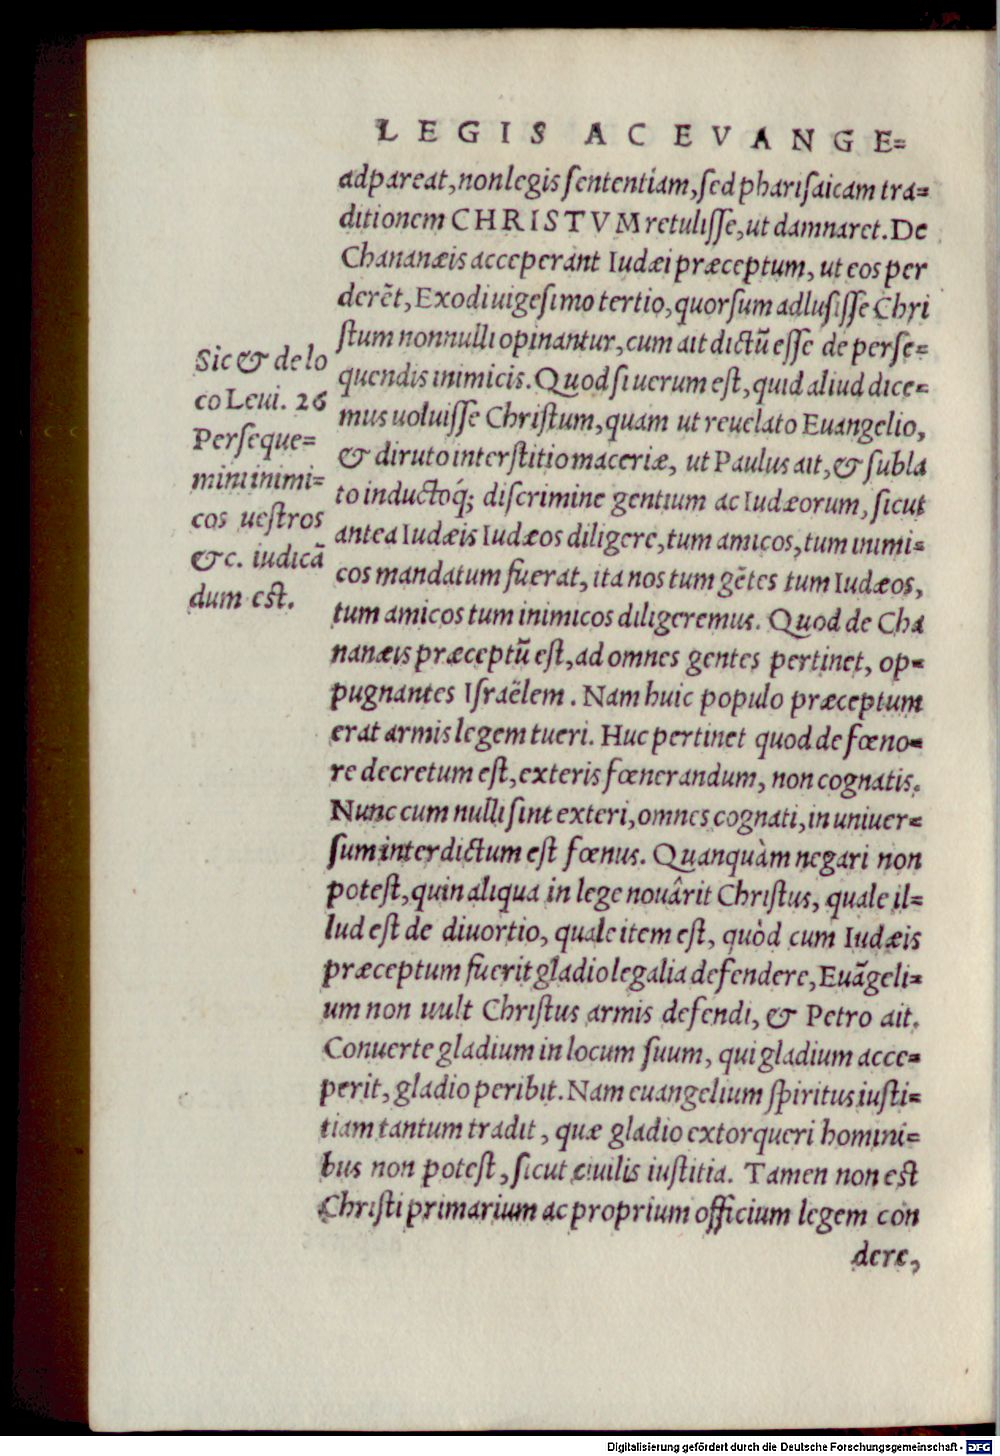 LEGIS AC EVANGE=
adpareat, non legis sententiam, sed pharisaicam tra=
ditionem CHRISTVM retulisse, ut damnaret. De
Chananæis acceperant Iudæi præceptum, ut eos per
derẽt, Exodi uigesimo tertio, quorsum adlusisse Chri
stum nonnulli opinantur, cum ait dictũ esse de perse=
quendis inimicis. Quod si uerum est, quid aliud dice=
mus uoluisse Christum, quam ut reuelato Euangelio,
& diruto interstitio maceriæ, ut Paulus ait, & subla
to inductoq́; discrimine gentium ac Iudæorum, sicut
antea Iudæis Iudæos diligere, tum amicos, tum inimi=
cos mandatum fuerat, ita nos tum gẽtes tum Iudæos,
tum amicos tum inimicos diligeremus. Quod de Cha
nanæis præceptũ est, ad omnes gentes pertinet, op=
pugnantes Israëlem. Nam huic populo præceptum
erat armis legem tueri. Huc pertinet quod de fœno=
re decretum est, exteris fœnerandum, non cognatis.
Nunc cum nulli sint exteri, omnes cognati, in uniuer=
sum interdictum est fœnus. Quanquàm negari non
potest, quin aliqua in lege nouârit Christus, quale il=
lud est de diuortio, quale item est, quòd cum Iudæis
præceptum fuerit gladio legalia defendere, Euãgeli=
um non uult Christus armis defendi, & Petro ait.
Conuerte gladium in locum suum, qui gladium acce=
perit, gladio peribit. Nam euangelium spiritus iusti=
tiam tantum tradit, quæ gladio extorqueri homini=
bus non potest, sicut ciuilis iustitia. Tamen non est
Christi primarium ac proprium officium legem con
dere,
Sic & de lo
co Leui. 26
Perseque=
mini inimi=
cos uestros
&c. iudicã
dum est.
Digitalisierung gefördert durch die Deutsche Forschungsgemeinschaft - DFG